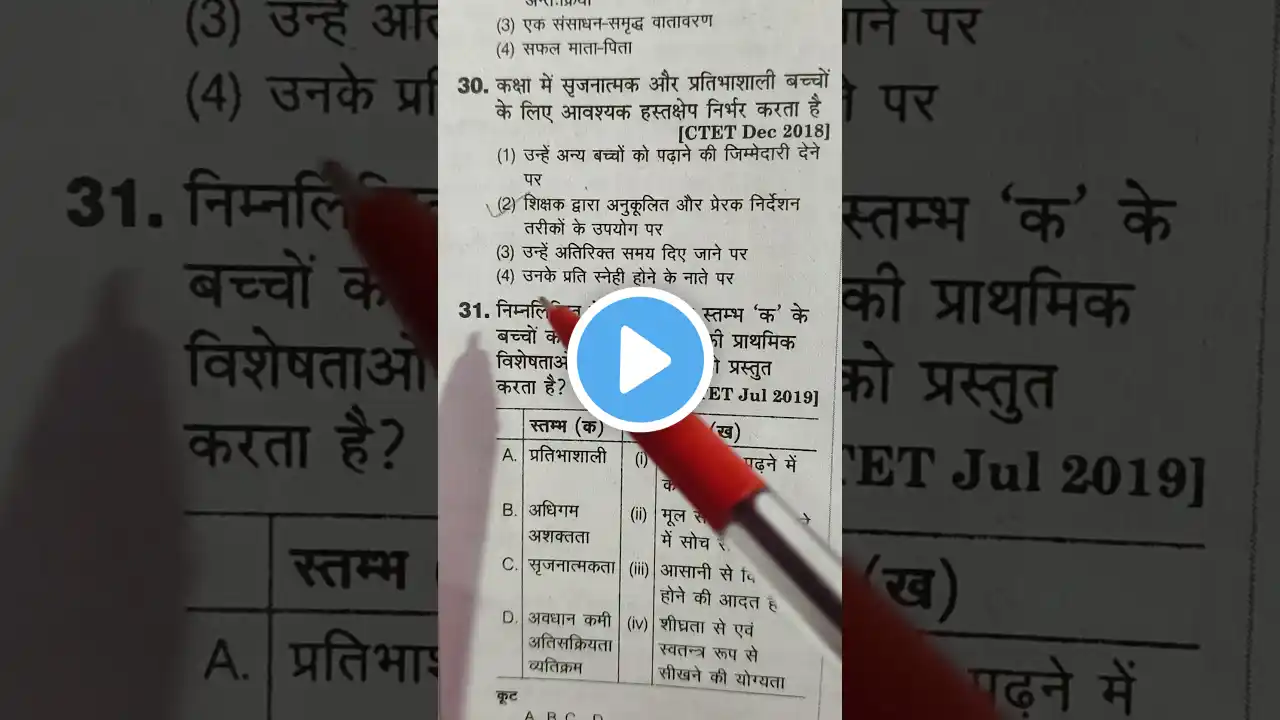 अन्तःक्रिया
(3) एक संसाधन-समृद्ध वातावरण
(4) सफल माता-पिता
30. कक्षा में सृजनात्मक और प्रतिभाशाली बच्चों
के लिए आवश्यक हस्तक्षेप निर्भर करता है
[CTET Dec 2018]
(1) उन्हें अन्य बच्चों को पढ़ाने की जिम्मेदारी देने
पर
(2) शिक्षक द्वारा अनुकूलित और प्रेरक निर्देशन
तरीकों के उपयोग पर
(3) उन्हें अतिरिक्त समय दिए जाने पर
(4) उनके प्रति स्नेही होने के नाते पर
31. स्तम्भ ‘क’ के
बच्चों की प्राथमिक
प्रस्तुत
करता है? Jul 2019]
स्तम्भ (क) (ख)
A. प्रतिभाशाली (i) पढ़ने में
B. अधिगम (ii) मूल
अशक्तता में सोच
C. सृजनात्मकता (iii) आसानी से
होने की आदत
D. अवधान कमी (iv) शीघ्रता से एवं
अतिसक्रियता स्वतन्त्र रूप से
व्यतिक्रम सीखने की योग्यता
कूट
A B C D